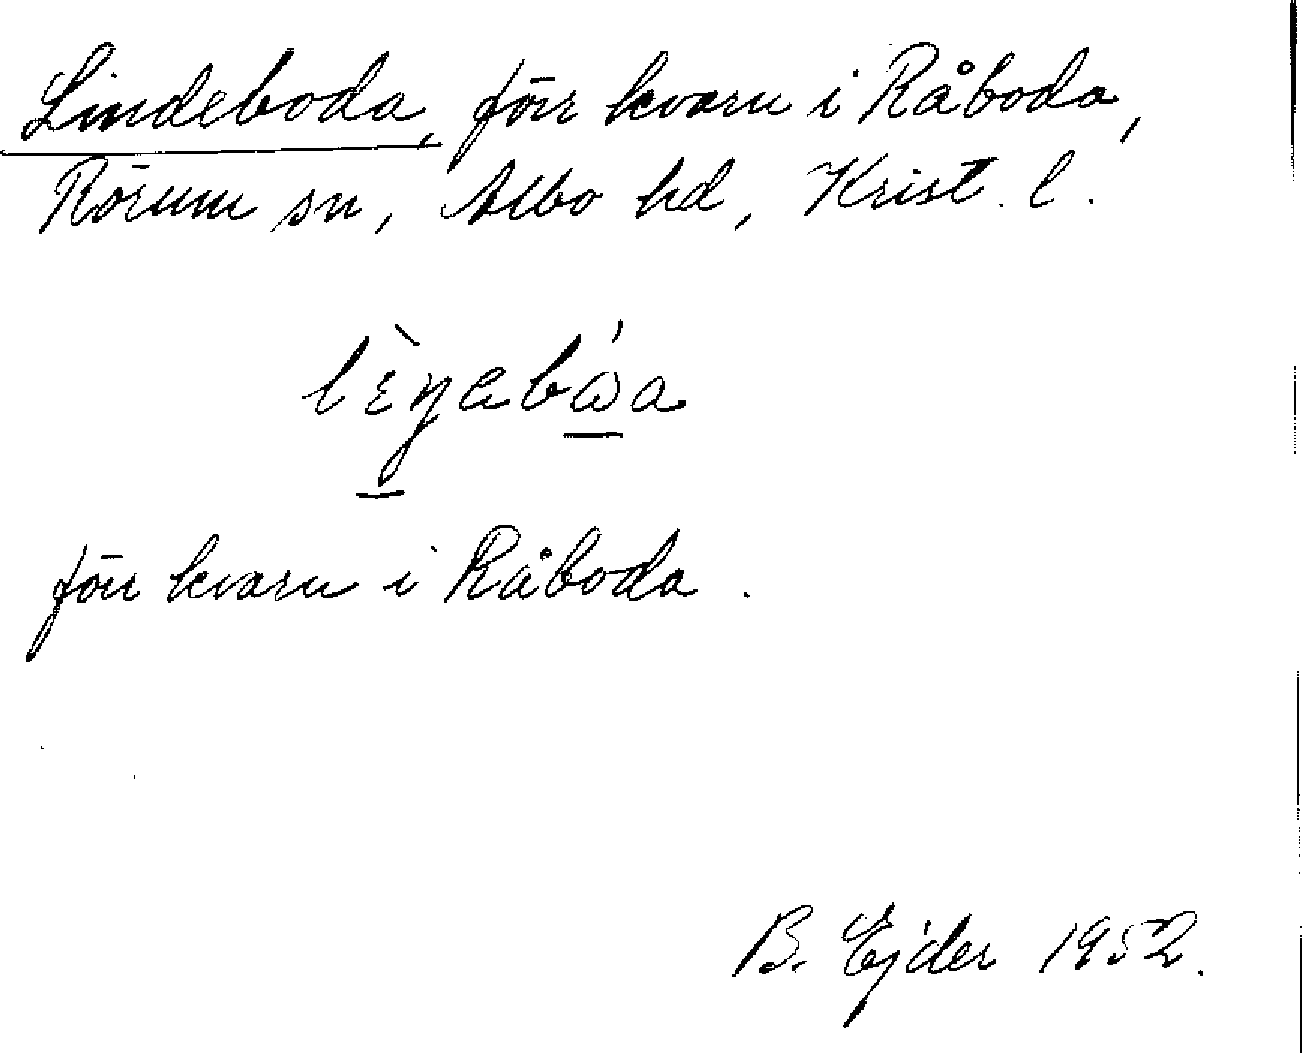 Lindeboda, förr kvarn i Råboda,
Rörum sn, Albo hd, Krist. l.
lèŋabώa
förr kvarn i Råboda.
B. Ejder 1952.